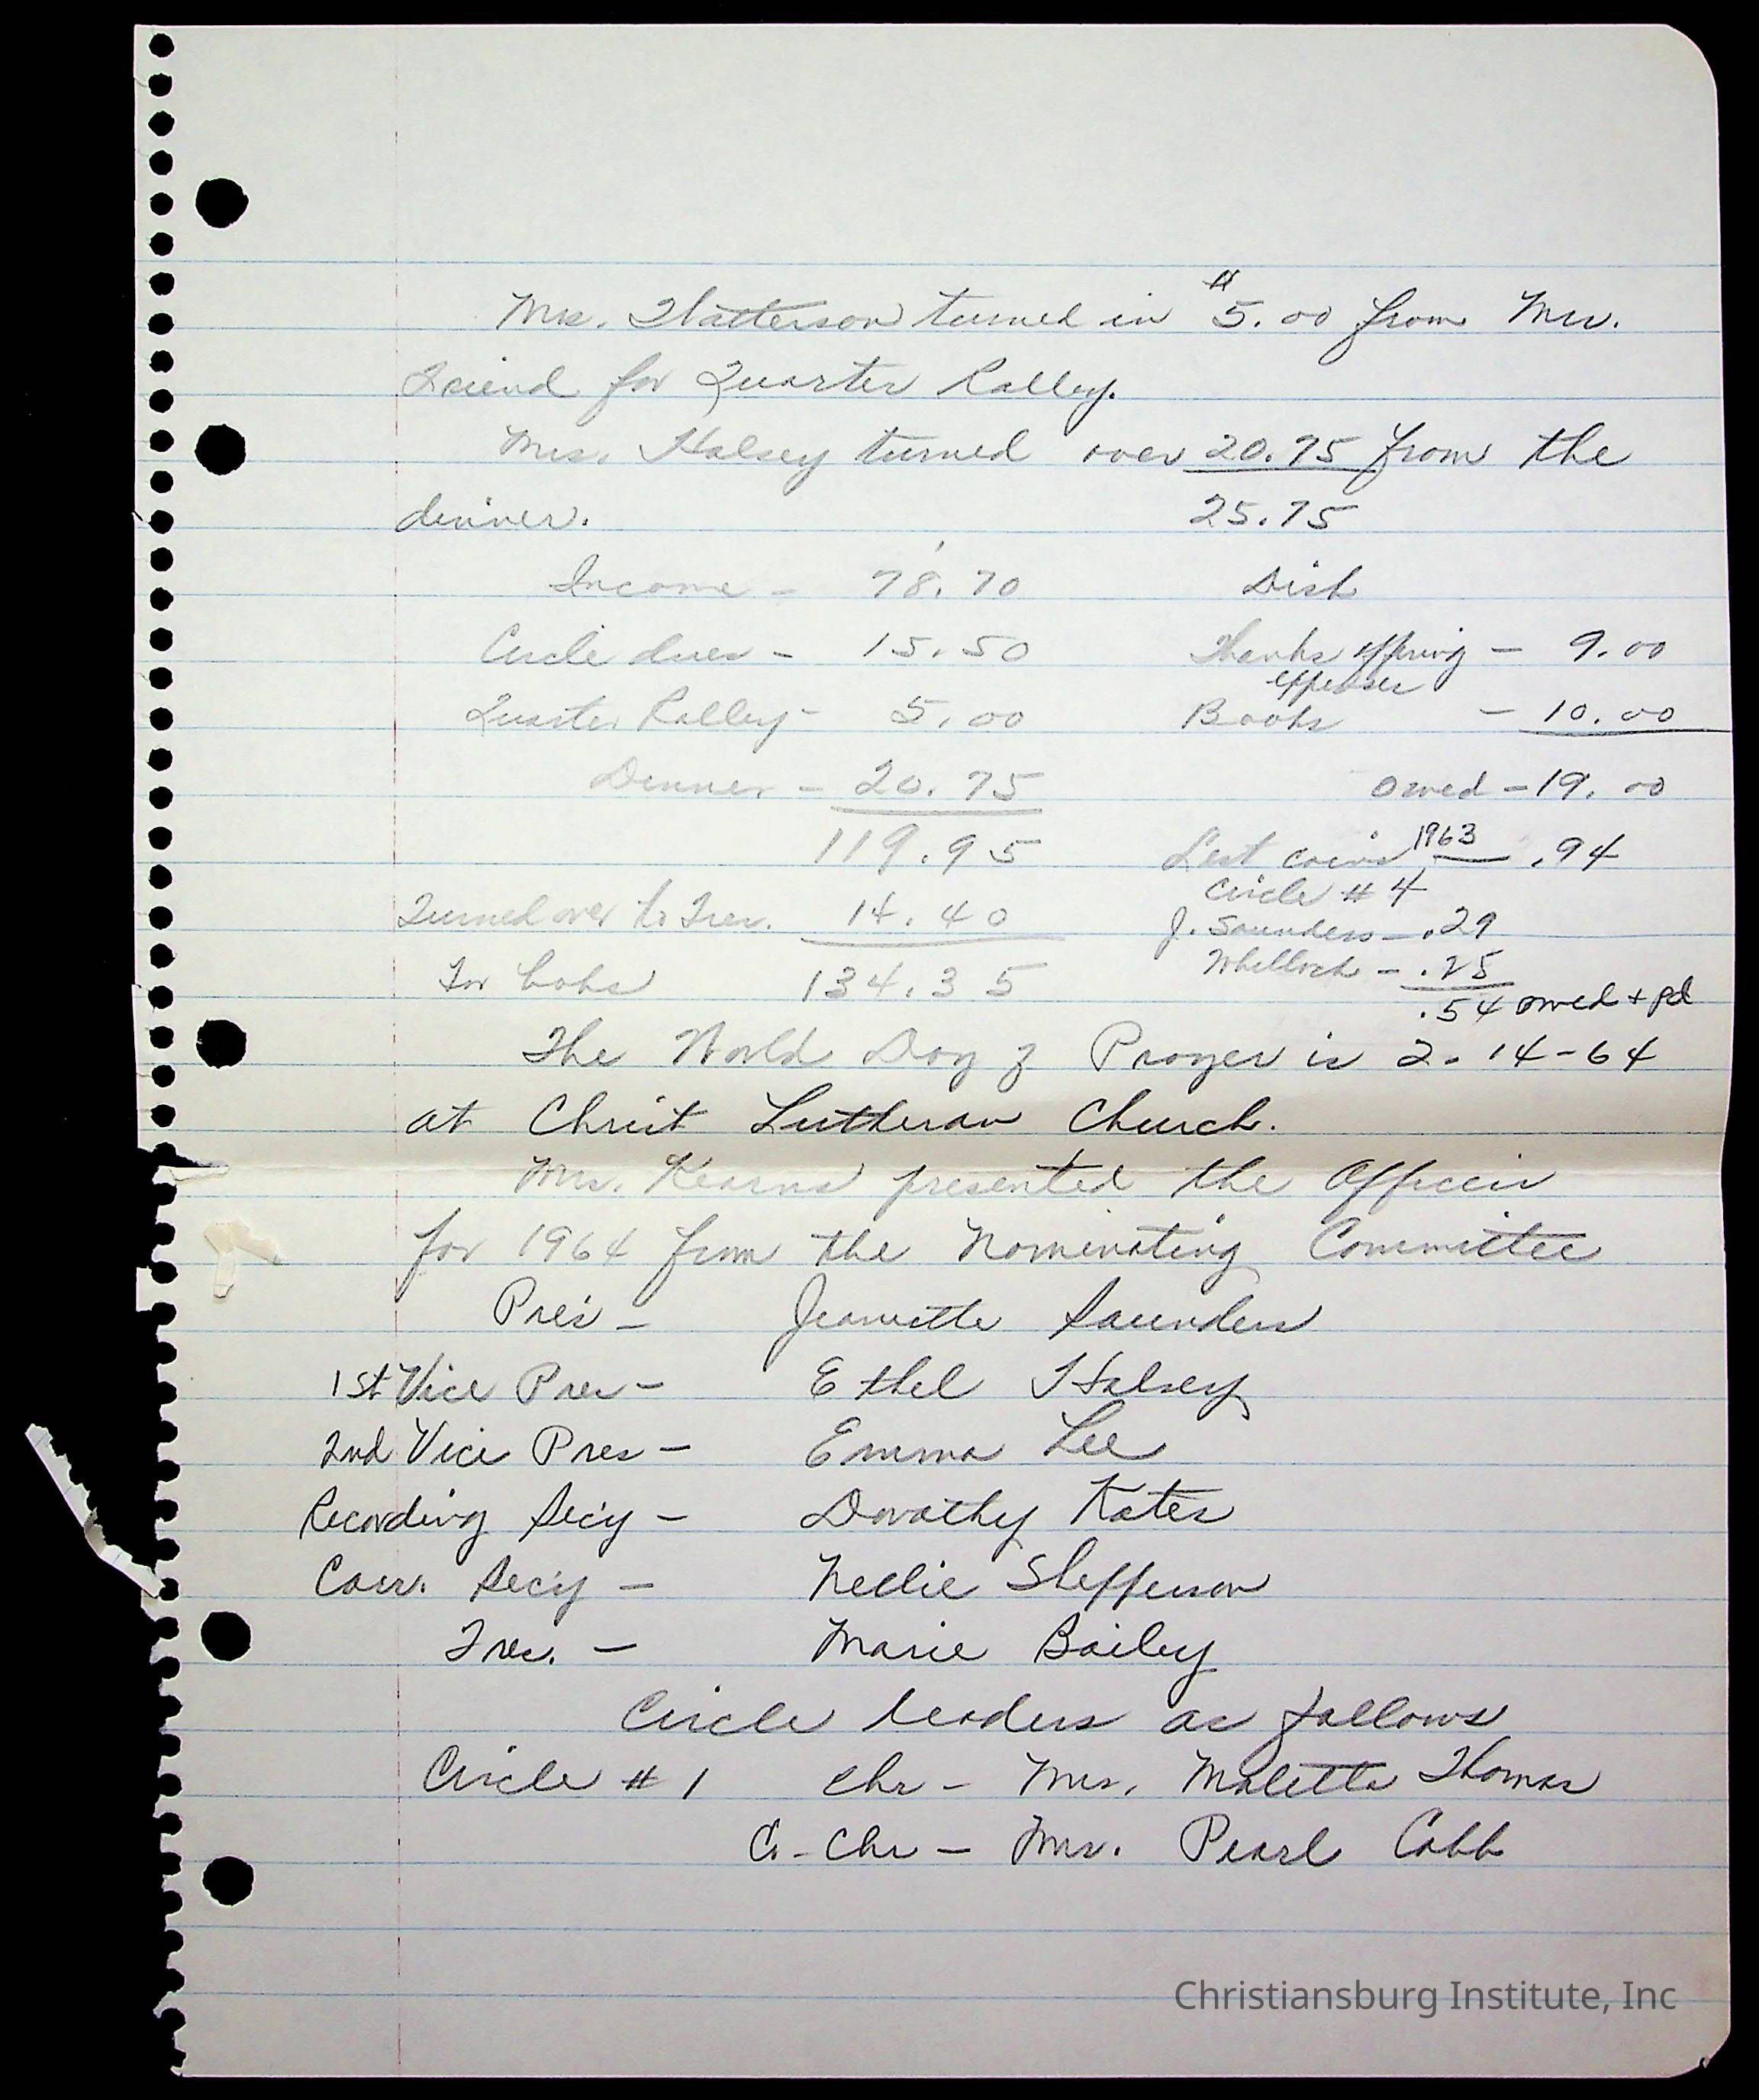 Mrs. turned in $5.00 from Mrs.
Friend for Quarter Ralley.
Mrs. Halsey turned over 20.75 from the
dinner. 25.75
Income - 78.70 Disb
Circle dues - 15.50 Thanks offring - 9.00
expenses
Quarter Ralley - 5.00 Books - 10.00
Dinner - 20.75 owed - 19.00
119.95 Lest coins 1963 — .94
Circle # 4
Turned over to Tres. 14.40 J. Saunders - .29
- .25
For 134.35 .54 owed + pd
The World Day of Prayer is 2-14-64
at Christ Lutheran Church.
Mrs. Kearns presented the Officers
for 1964 from the Nominating Committee
Pres - Jeanette Saunders
1st Vice Pres - Ethel Halsey
2nd Vice Pres - Emma Lee
Recording Sec'y - Dorothy Kates
Corr. Sec'y - Nellie Shefferson
Tres. - Marie Bailey
Circle leaders as follows
Circle # 1 Chr - Mrs. Maletta Thomas
C.-Chr - Mrs. Pearl Cobb
Christiansburg Institute, Inc